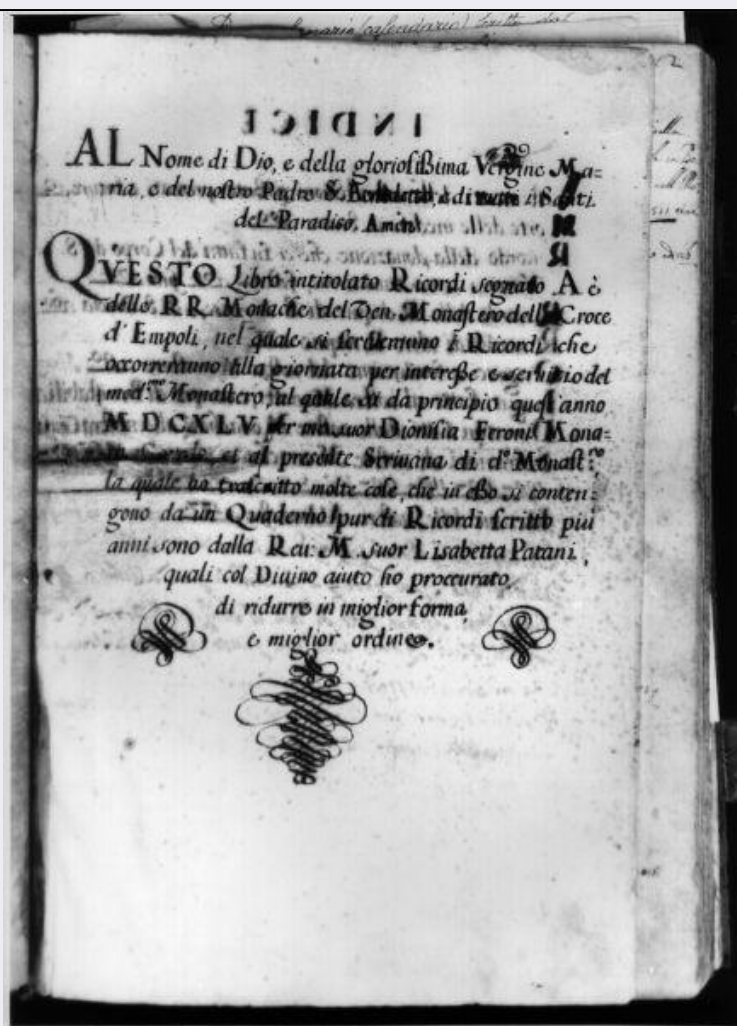 calendario) scritto dal
INDICI
AL Nome di Dio, e della gloriosissima Vergine Ma=
ria, e del nostro Padre S. Benedetto, e di tutti i Santi
del Paradiso. Amen.
QVESTO Libro intitolato Ricordi segnato A è
delle RR. Monache del Ven. Monastero della Croce
d'Empoli, nel quale si scriveranno i Ricordi che
occorreranno alla giornata per interesse e servitio del
med.mo Monastero, al quale si dà principio quest'anno
M DCXLV. per me suor Dionisia Ferroni Mona=
et al presente Scrivana di d.o Monast.ro
la quale ho trascritto molte cose, che in esso si conten=
gono da un Quaderno pur di Ricordi scritto più
anni sono dalla Reu: M. suor Lisabetta Patani,
quali col Diuino aiuto ho proccurato
di ridurre in miglior forma,
e miglior ordine.